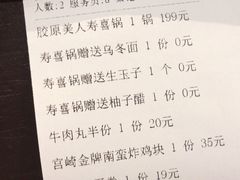 人数:2
胶原美人寿喜锅 1 锅 199元
寿喜锅赠送乌冬面 1 份 0元
寿喜锅赠送生玉子 1 个 0元
寿喜锅赠送柚子醋 1 份 0元
牛肉丸半份 1 份 20元
宫崎金牌南蛮炸鸡块 1 份 35元
1 份 19元